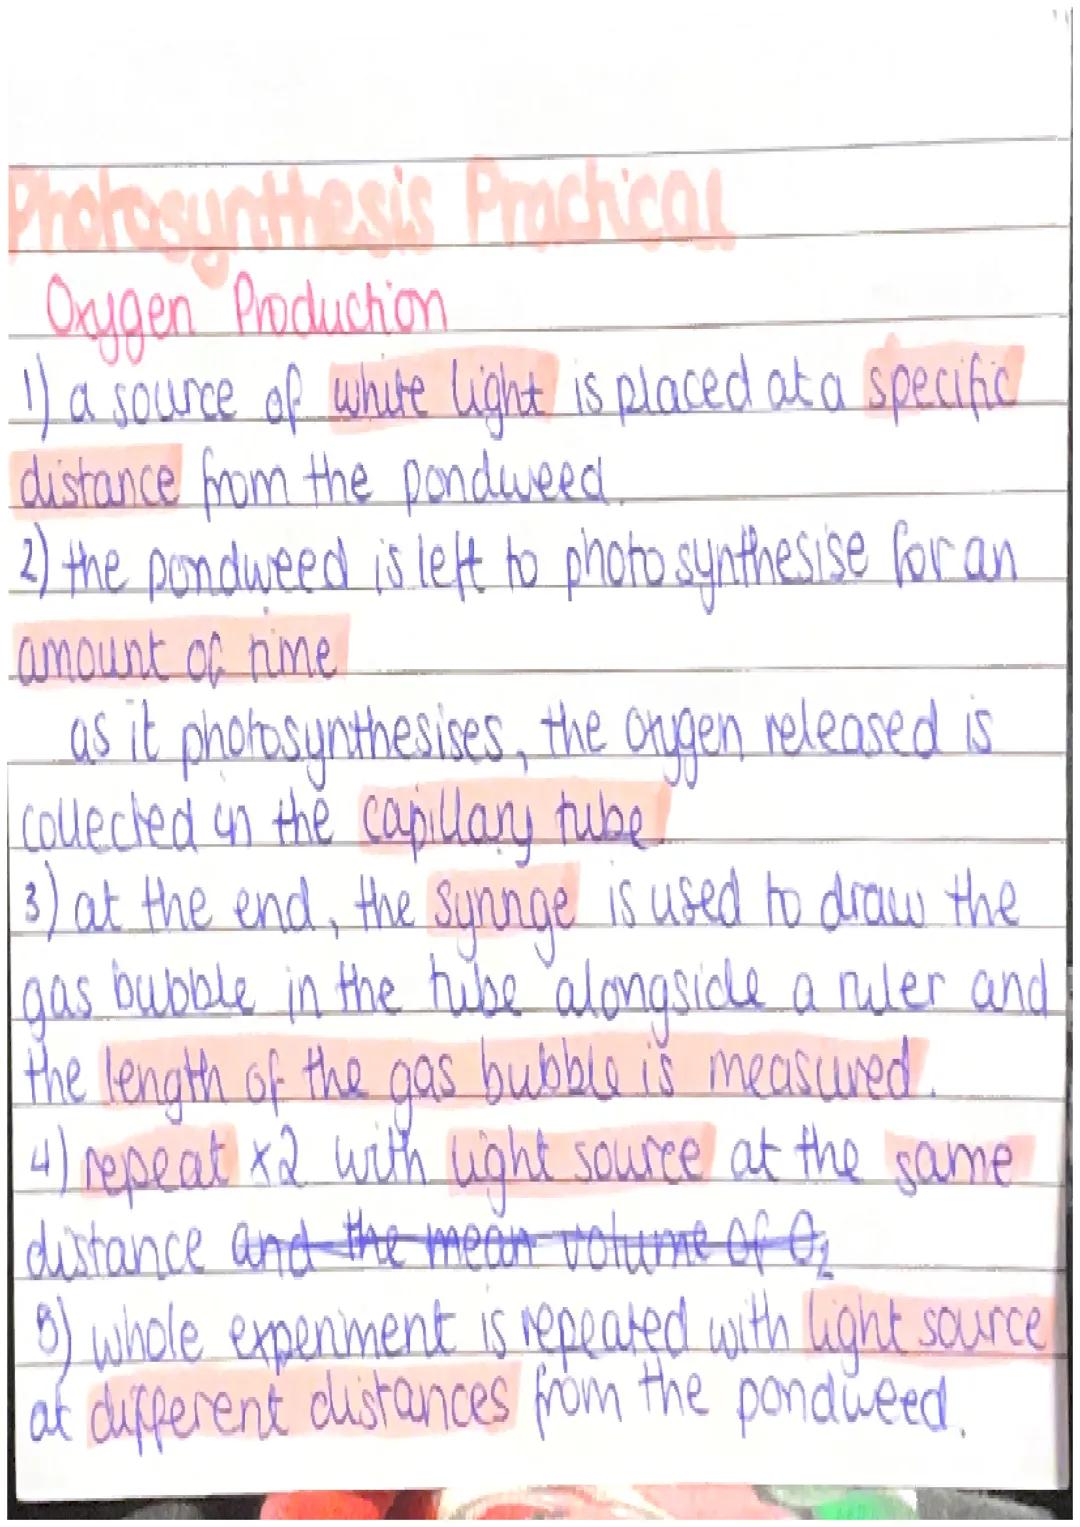 Photosynthesis Practical
Oxygen Production
1) a source of white light is placed at a specific
distance from the pondweed.
2) the pondweed is left to photosynthesise for an
amount of time
as it photosynthesises, the oxygen released is
collected in the capillary tube.
3) at the end, the syringe is used to draw the
gas bubble in the tube alongside a ruler and
the length of the gas bubble is measured.
4) repeat x2 with light source at the same
distance and the mean volume of O₂
5) whole experiment is repeated with light source
at different distances from the pondweed.